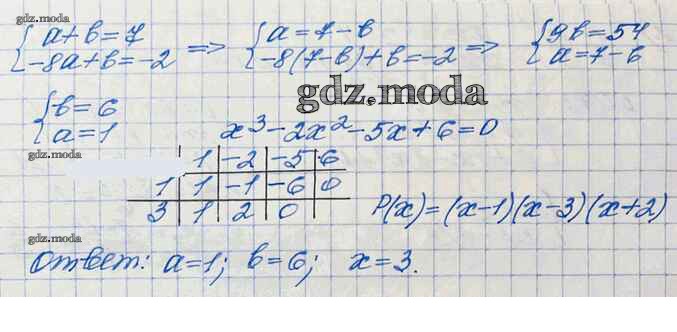 gdz.moda
{a+b=7 {a=7-b {9b=54
{-8a+b=-2 => {-8(7-b)+b=-2 => {a=7-b
gdz.moda
{b=6
{a=1
gdz.moda
x³-2x²-5x+6=0
gdz.moda
1 -2 -5 6
1 1 -1 -6 0
3 1 2 0
P(x)=(x-1)(x-3)(x+2)
gdz.moda
Ответ: a=1; b=6; x=3.